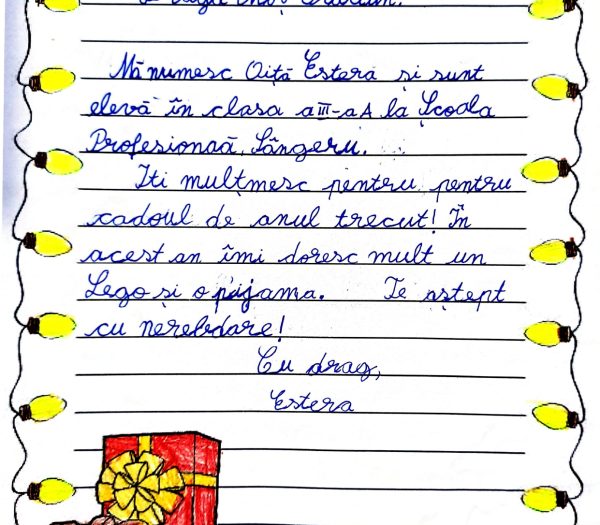 Mă numesc Oiță Estera și sunt
elevă în clasa a III-a A la Școala
Profesionaă, Sângeru.
Iti multmesc pentru pentru
cadoul de anul trecut! În
acest an îmi doresc mult un
Lego și o pijama. Te aștept
cu nerebdare!
Cu drag,
Estera